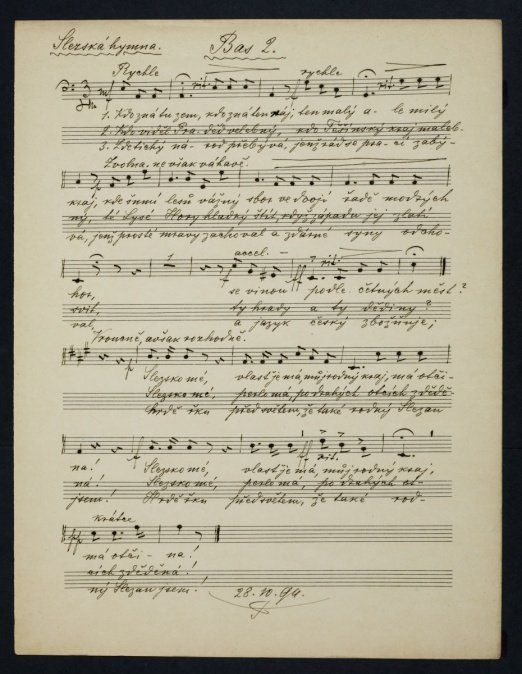 Slezská hymna. Bas 2.
Rychle rit. rychle
1. Kdo zná tu zem, kdo zná ten ráj, ten malý a- le milý
2. Kdo viděl Pra- děd velebný, kdo Těšínský kraj maleb-
3. Zde tichý ná- rod přebývá, jenž rád se pra- cí zabý-
Zvolna, ne však váhavě.
kraj, kde šumí lesů vážný sbor ve dvojí řadě modrých
ný, ti Lysé Hory hladký štít, když západu jej zlatí
vá, jenž prosté mravy zachoval a zdárné syny odcho-
1 accel. - rit.
hor, se vinou podle četných měst?
svit, ty hrady a ty dědiny?
val, a jazyk český zbožňuje;
Vroucně, avšak rozhodně.
Slezsko mé, vlast je má můj rodný kraj, má otči-
Slezsko mé, perlo má, po drahých otcích zdědě-
Hrdě řku před světem, že také rodný Slezan
rit.
na! Slezsko mé, vlast je má, můj rodný kraj,
ná! Slezsko mé, perlo má, po drahých ot-
jsem! Hrdě řku před světem, že také rod-
krátce
pp
má otči- na!
cích zděděná!
ný Slezan jsem!
28. 10. 94.